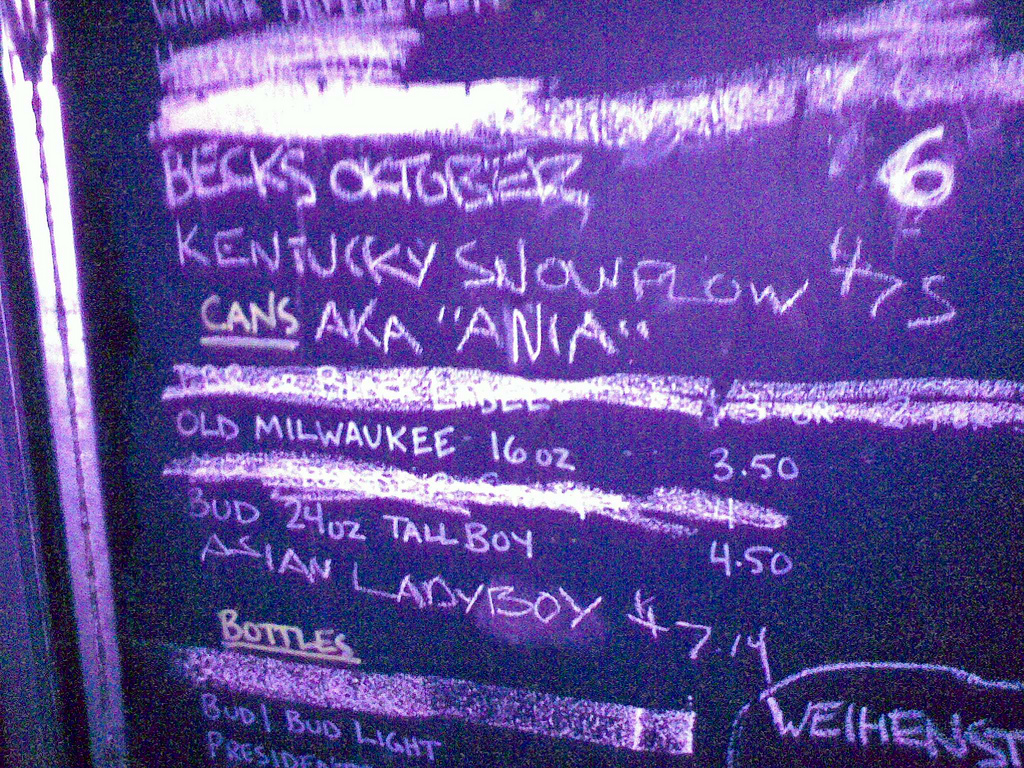 BECKS OKTOBER 6
KENTUCKY SNOWFLOW 475
CANS AKA "ANIA"
OLD MILWAUKEE 16oz 3.50
BUD 24oz TALLBOY 4.50
ASIAN LADYBOY $7.14
BOTTLES
BUD/BUD LIGHT
WEIHENST